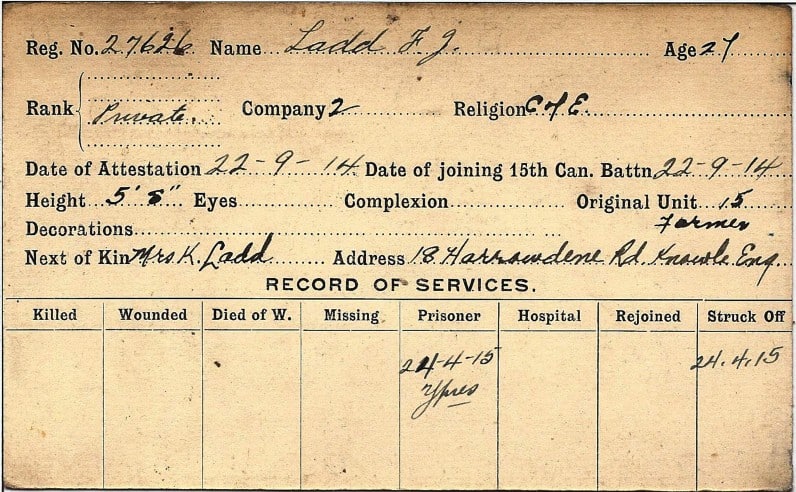 Reg. No. 27626 Name Ladd F. J. Age 27
Rank Private. Company 2 Religion C of E.
Date of Attestation 22-9-14 Date of joining 15th Can. Battn 22-9-14
Height 5' 8" Eyes Complexion Original Unit 15
Decorations Farmer
Next of Kin Mrs K. Ladd Address 18 Harrowdene Rd. Knowle Eng.
RECORD OF SERVICES.
Killed Wounded Died of W. Missing Prisoner Hospital Rejoined Struck Off
24-4-15 24.4.15
Ypres